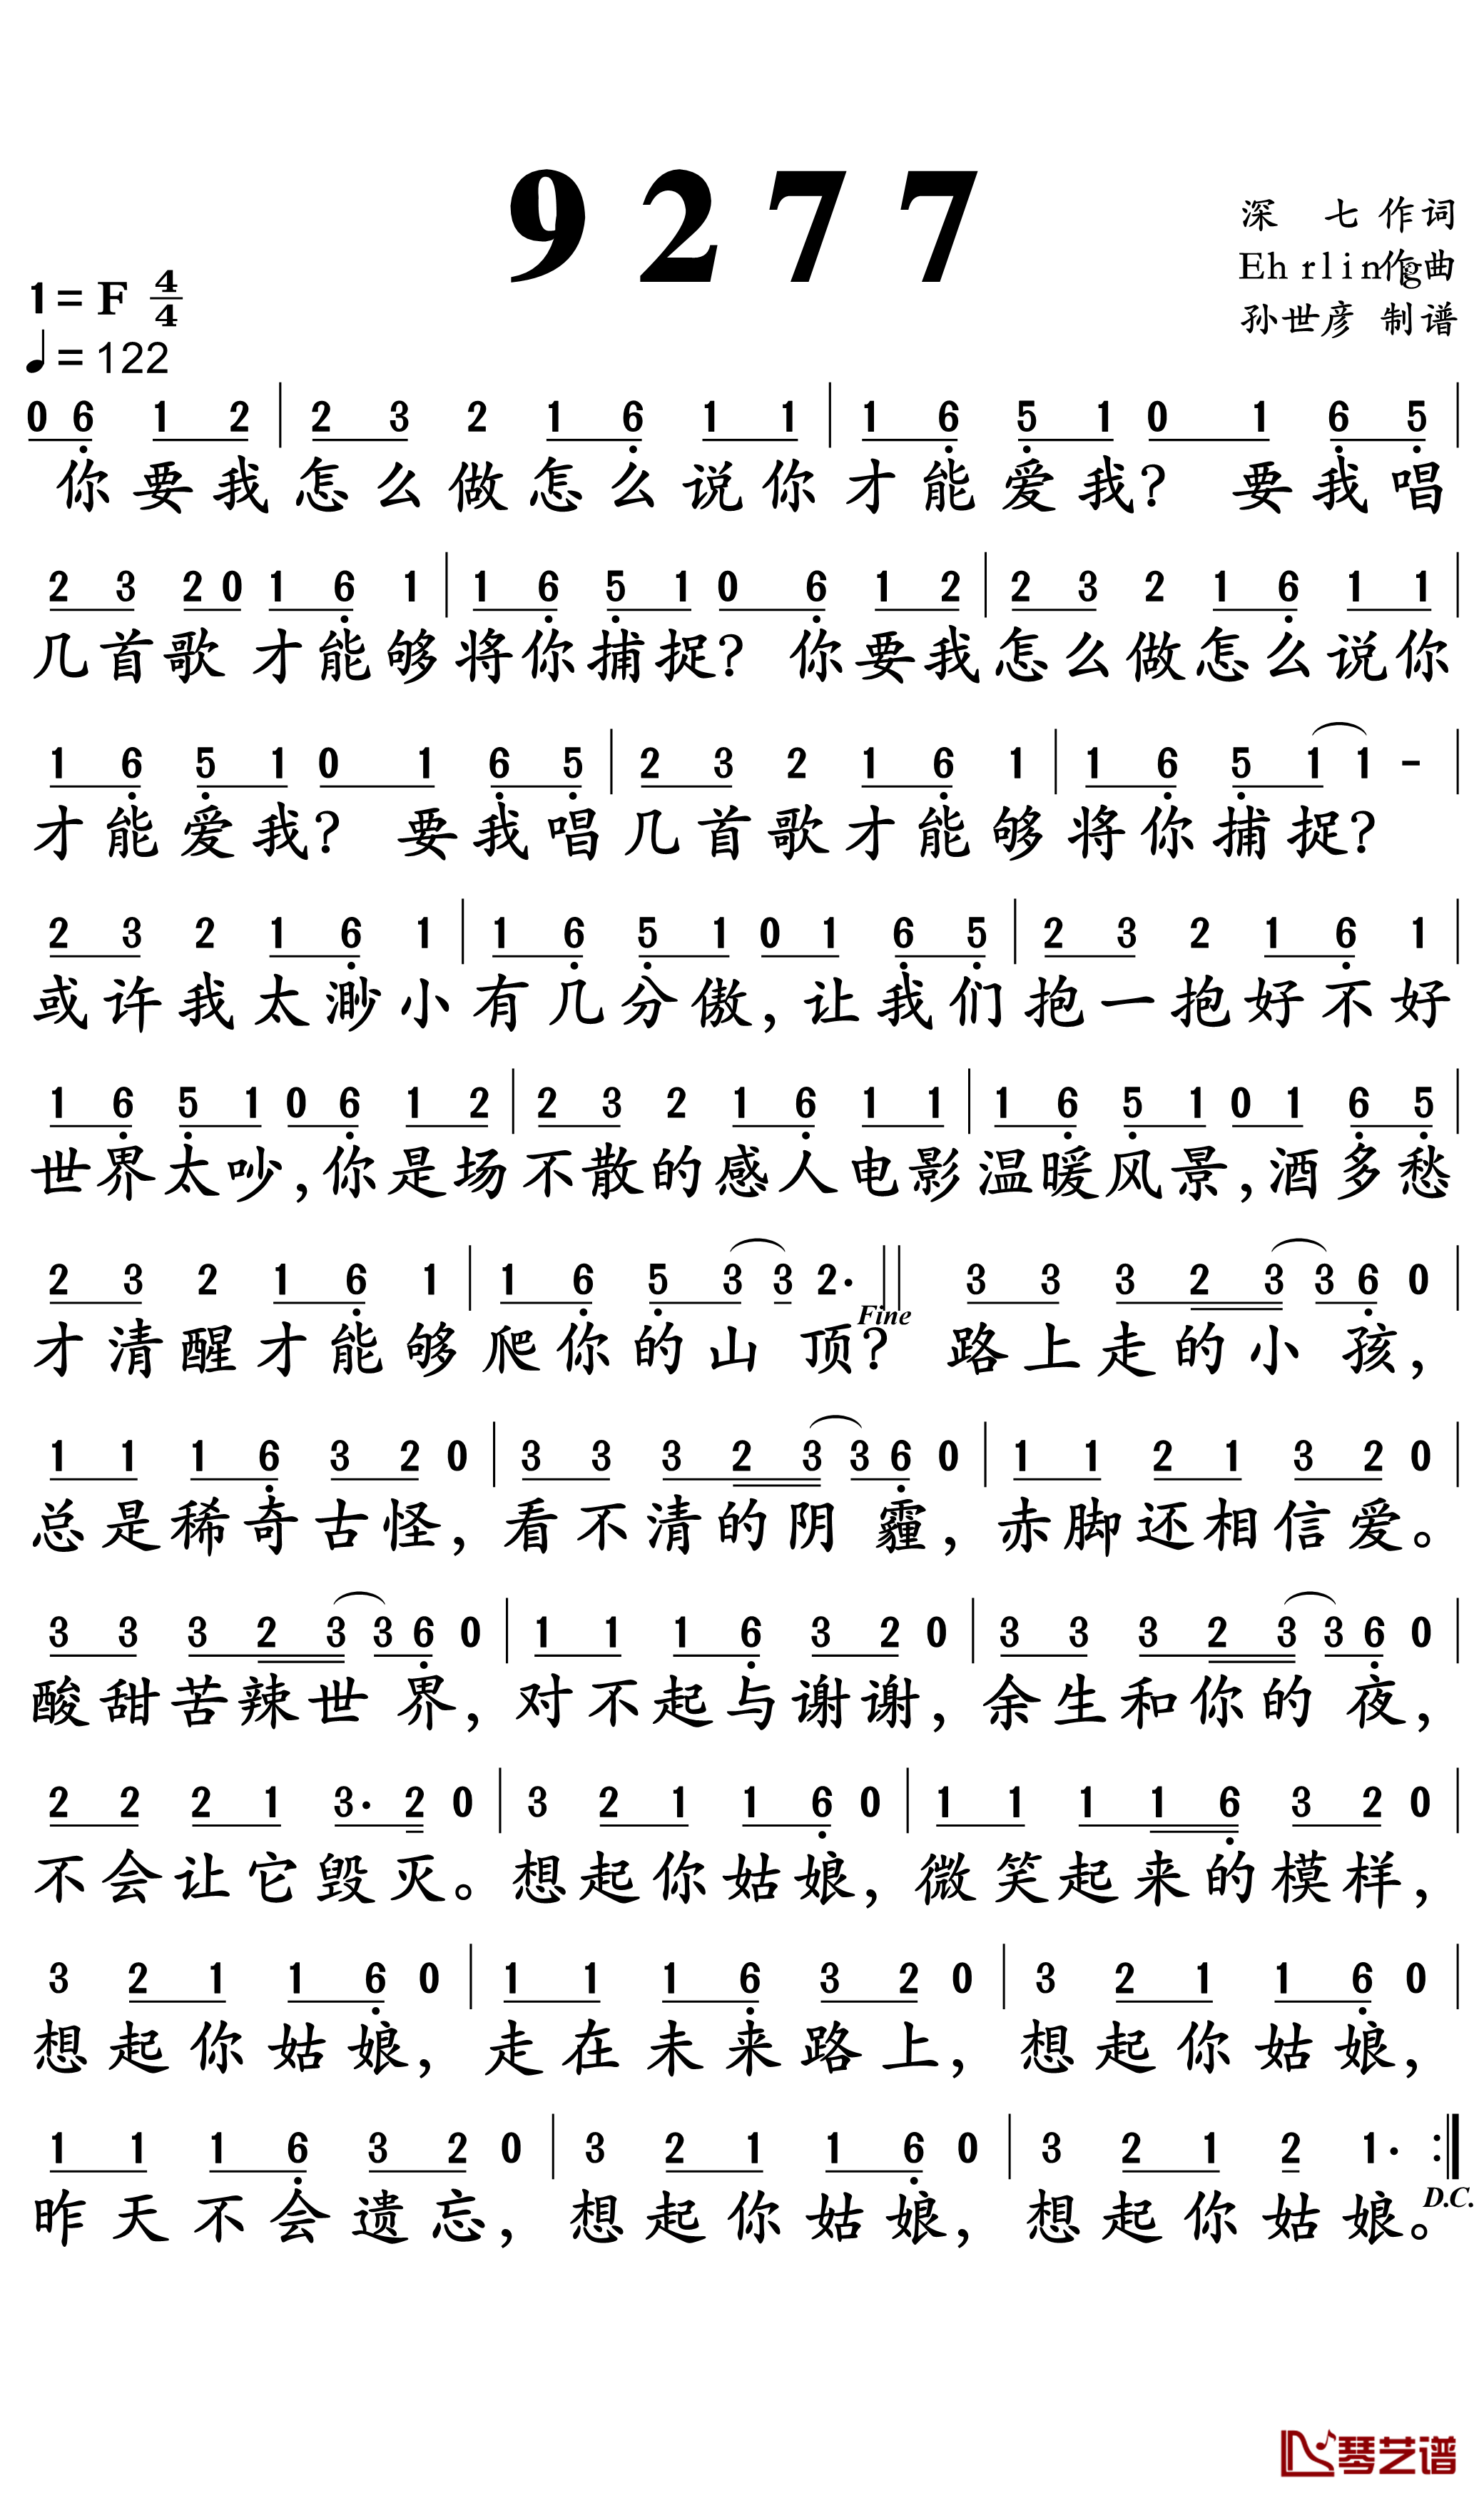 9277
深 七 作词
Ehrling作曲
孙世彦 制谱
1=F 4/4
♩=122
0 6 1 2 | 2 3 2 1 6 1 1 | 1 6 5 1 0 1 6 5 |
你要我怎么做怎么说你才能爱我? 要我唱
2 3 2 0 1 6 1 | 1 6 5 1 0 6 1 2 | 2 3 2 1 6 1 1 |
几首歌才能够将你捕捉? 你要我怎么做怎么说你
1 6 5 1 0 1 6 5 | 2 3 2 1 6 1 | 1 6 5 1 1 - |
才能爱我? 要我唱几首歌才能够将你捕捉?
2 3 2 1 6 1 | 1 6 5 1 0 1 6 5 | 2 3 2 1 6 1 |
或许我太渺小有几分傲,让我们抱一抱好不好
1 6 5 1 0 6 1 2 | 2 3 2 1 6 1 1 | 1 6 5 1 0 1 6 5 |
世界太吵,你是场不散的感人电影温暖风景,酒多愁
2 3 2 1 6 1 | 1 6 5 3 3 2· || 3 3 3 2 3 3 6 0 |
Fine
才清醒才能够爬你的山顶? 路上走的小孩,
1 1 1 6 3 2 0 | 3 3 3 2 3 3 6 0 | 1 1 2 1 3 2 0 |
总是稀奇古怪,看不清的阴霾,赤脚还相信爱。
3 3 3 2 3 3 6 0 | 1 1 1 6 3 2 0 | 3 3 3 2 3 3 6 0 |
酸甜苦辣世界,对不起与谢谢,余生和你的夜,
2 2 2 1 3· 2 0 | 3 2 1 1 6 0 | 1 1 1 1 6 3 2 0 |
不会让它毁灭。想起你姑娘,微笑起来的模样,
3 2 1 1 6 0 | 1 1 1 6 3 2 0 | 3 2 1 1 6 0 |
想起你姑娘,走在未来路上,想起你姑娘,
1 1 1 6 3 2 0 | 3 2 1 1 6 0 | 3 2 1 2 1· :||
D.C.
昨天不会遗忘,想起你姑娘,想起你姑娘。
琴艺谱